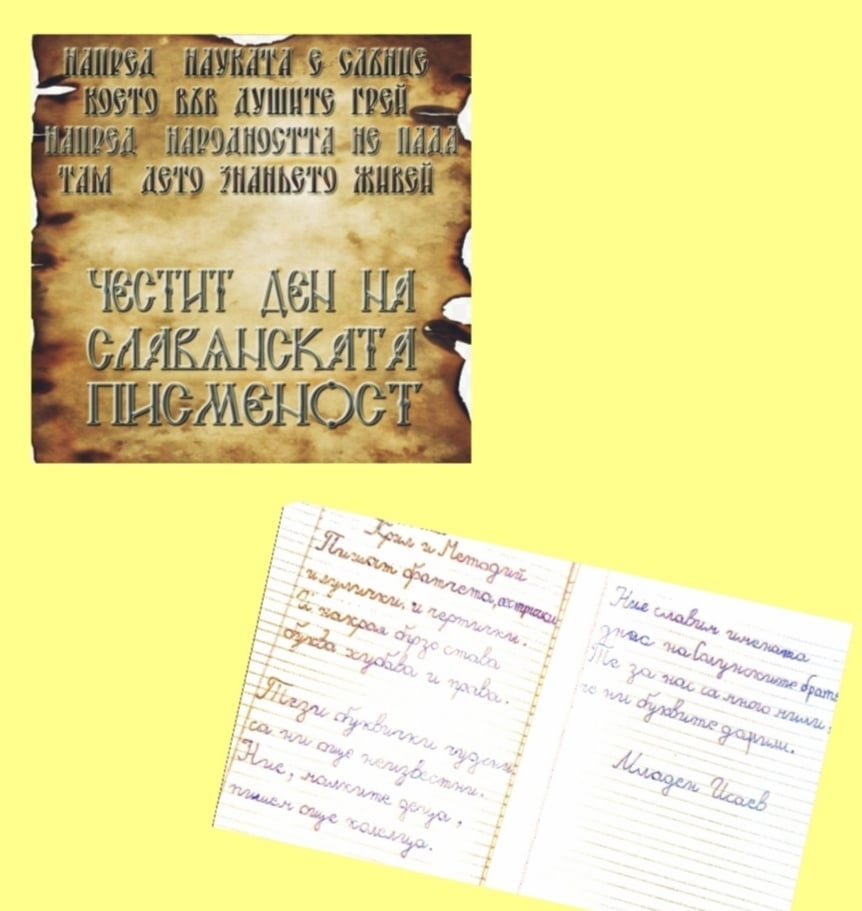 НАПРЕД НАУКАТА Е СЛЪНЦЕ
КОЕТО ВЪВ ДУШИТЕ ГРЕЙ
НАПРЕД НАРОДНОСТТА НЕ ПАДА
ТАМ ДЕТО ЗНАНЬЕТО ЖИВЕЙ
ЧЕСТИТ ДЕН НА
СЛАВѦНСКАТА
ПИСМЕНОСТ
Крил и Методий
Пишат братчета,
и лулички, и чертички.
И накрая бързо става
буква хубава и права.
Тези буквички чудесни
са ни още неизвестни.
Ние, малките деца,
пишем още колелца.
Ние славим имената
днес на Солунските братя
Те за нас са много мили,
че ни буквите дарили.
Младен Исаев